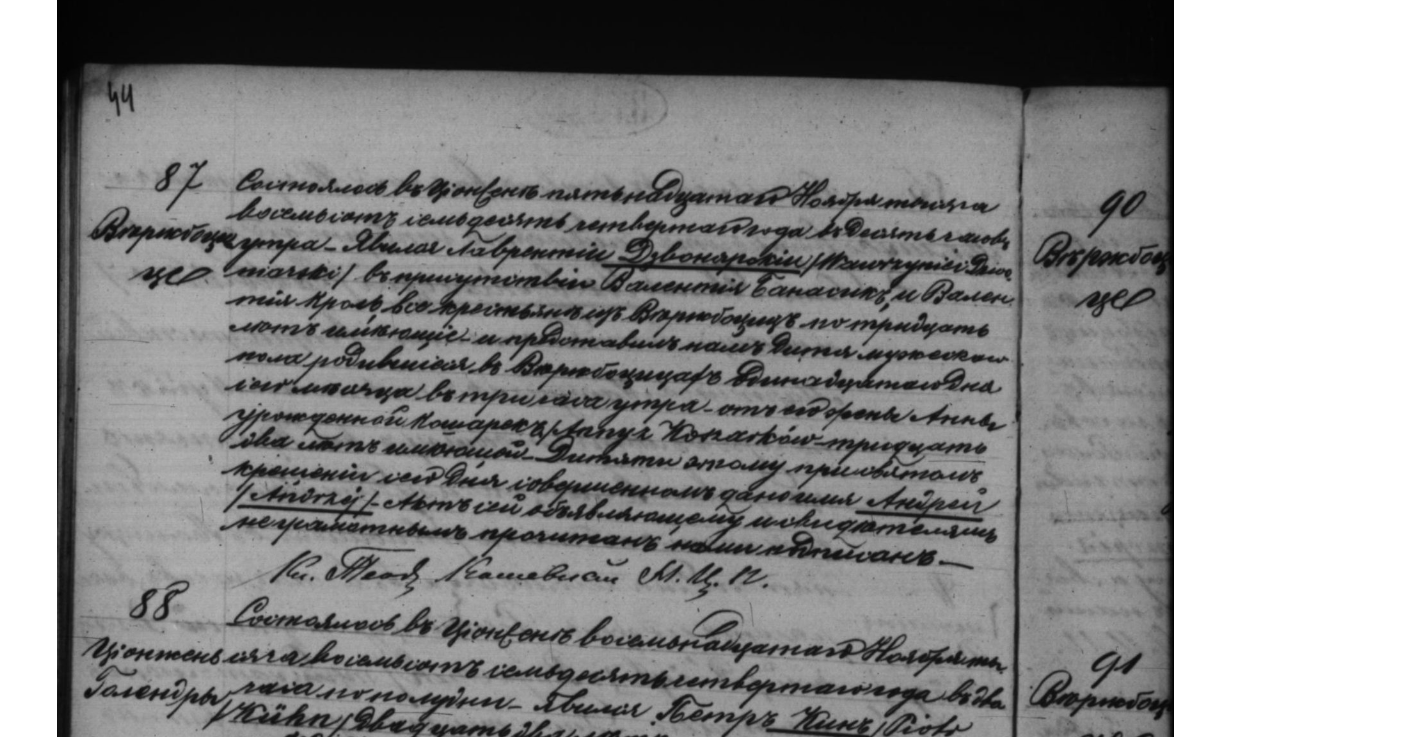 44
87
Вержбоцицe
Состоялось въ Цiонжень пятьнадцатаго Ноября тысяча
восемьсотъ семьдесятъ четвертаго года въ десять часовъ
утра – Явился Лаврентiй Дзвонярскiй /Wawrzyniec Dzwo
niarski/ въ присутствiи Валентiя Банасикъ, и Вален
тiя Кроль все крестьянъ изъ Вержбоцицъ по тридцать
лѣтъ имѣющiе – и представилъ намъ дитя мужескаго
пола родившiеся въ Вержбоцицахъ Одинадцатаго дня
сего мѣсяца въ три часа утра – отъ его жены Анны
урожденной Кошарекъ /Anny z Koszarków – тридцать
два лѣтъ имѣющой – Дитяти этому при святомъ
крещенiи сего дня совершенномъ дано имя Андрей
/Andrzéj/ – Актъ сей объявляющему и свидѣтелямъ
неграмотнымъ прочитанъ нами подписанъ –
Кс. Теод. М. Ц. П.
88
Цiонжень
Голендры
Состоялось въ Цiонжень восемьнадцатаго Ноября ты
сяча восемьсотъ семьдесятъ четвертаго года въ два
часа по полудни – Явился Петръ Кинъ /Piotr
/Kühn/ двадцать два
90
Вержбоц
це
91
Вержбоц